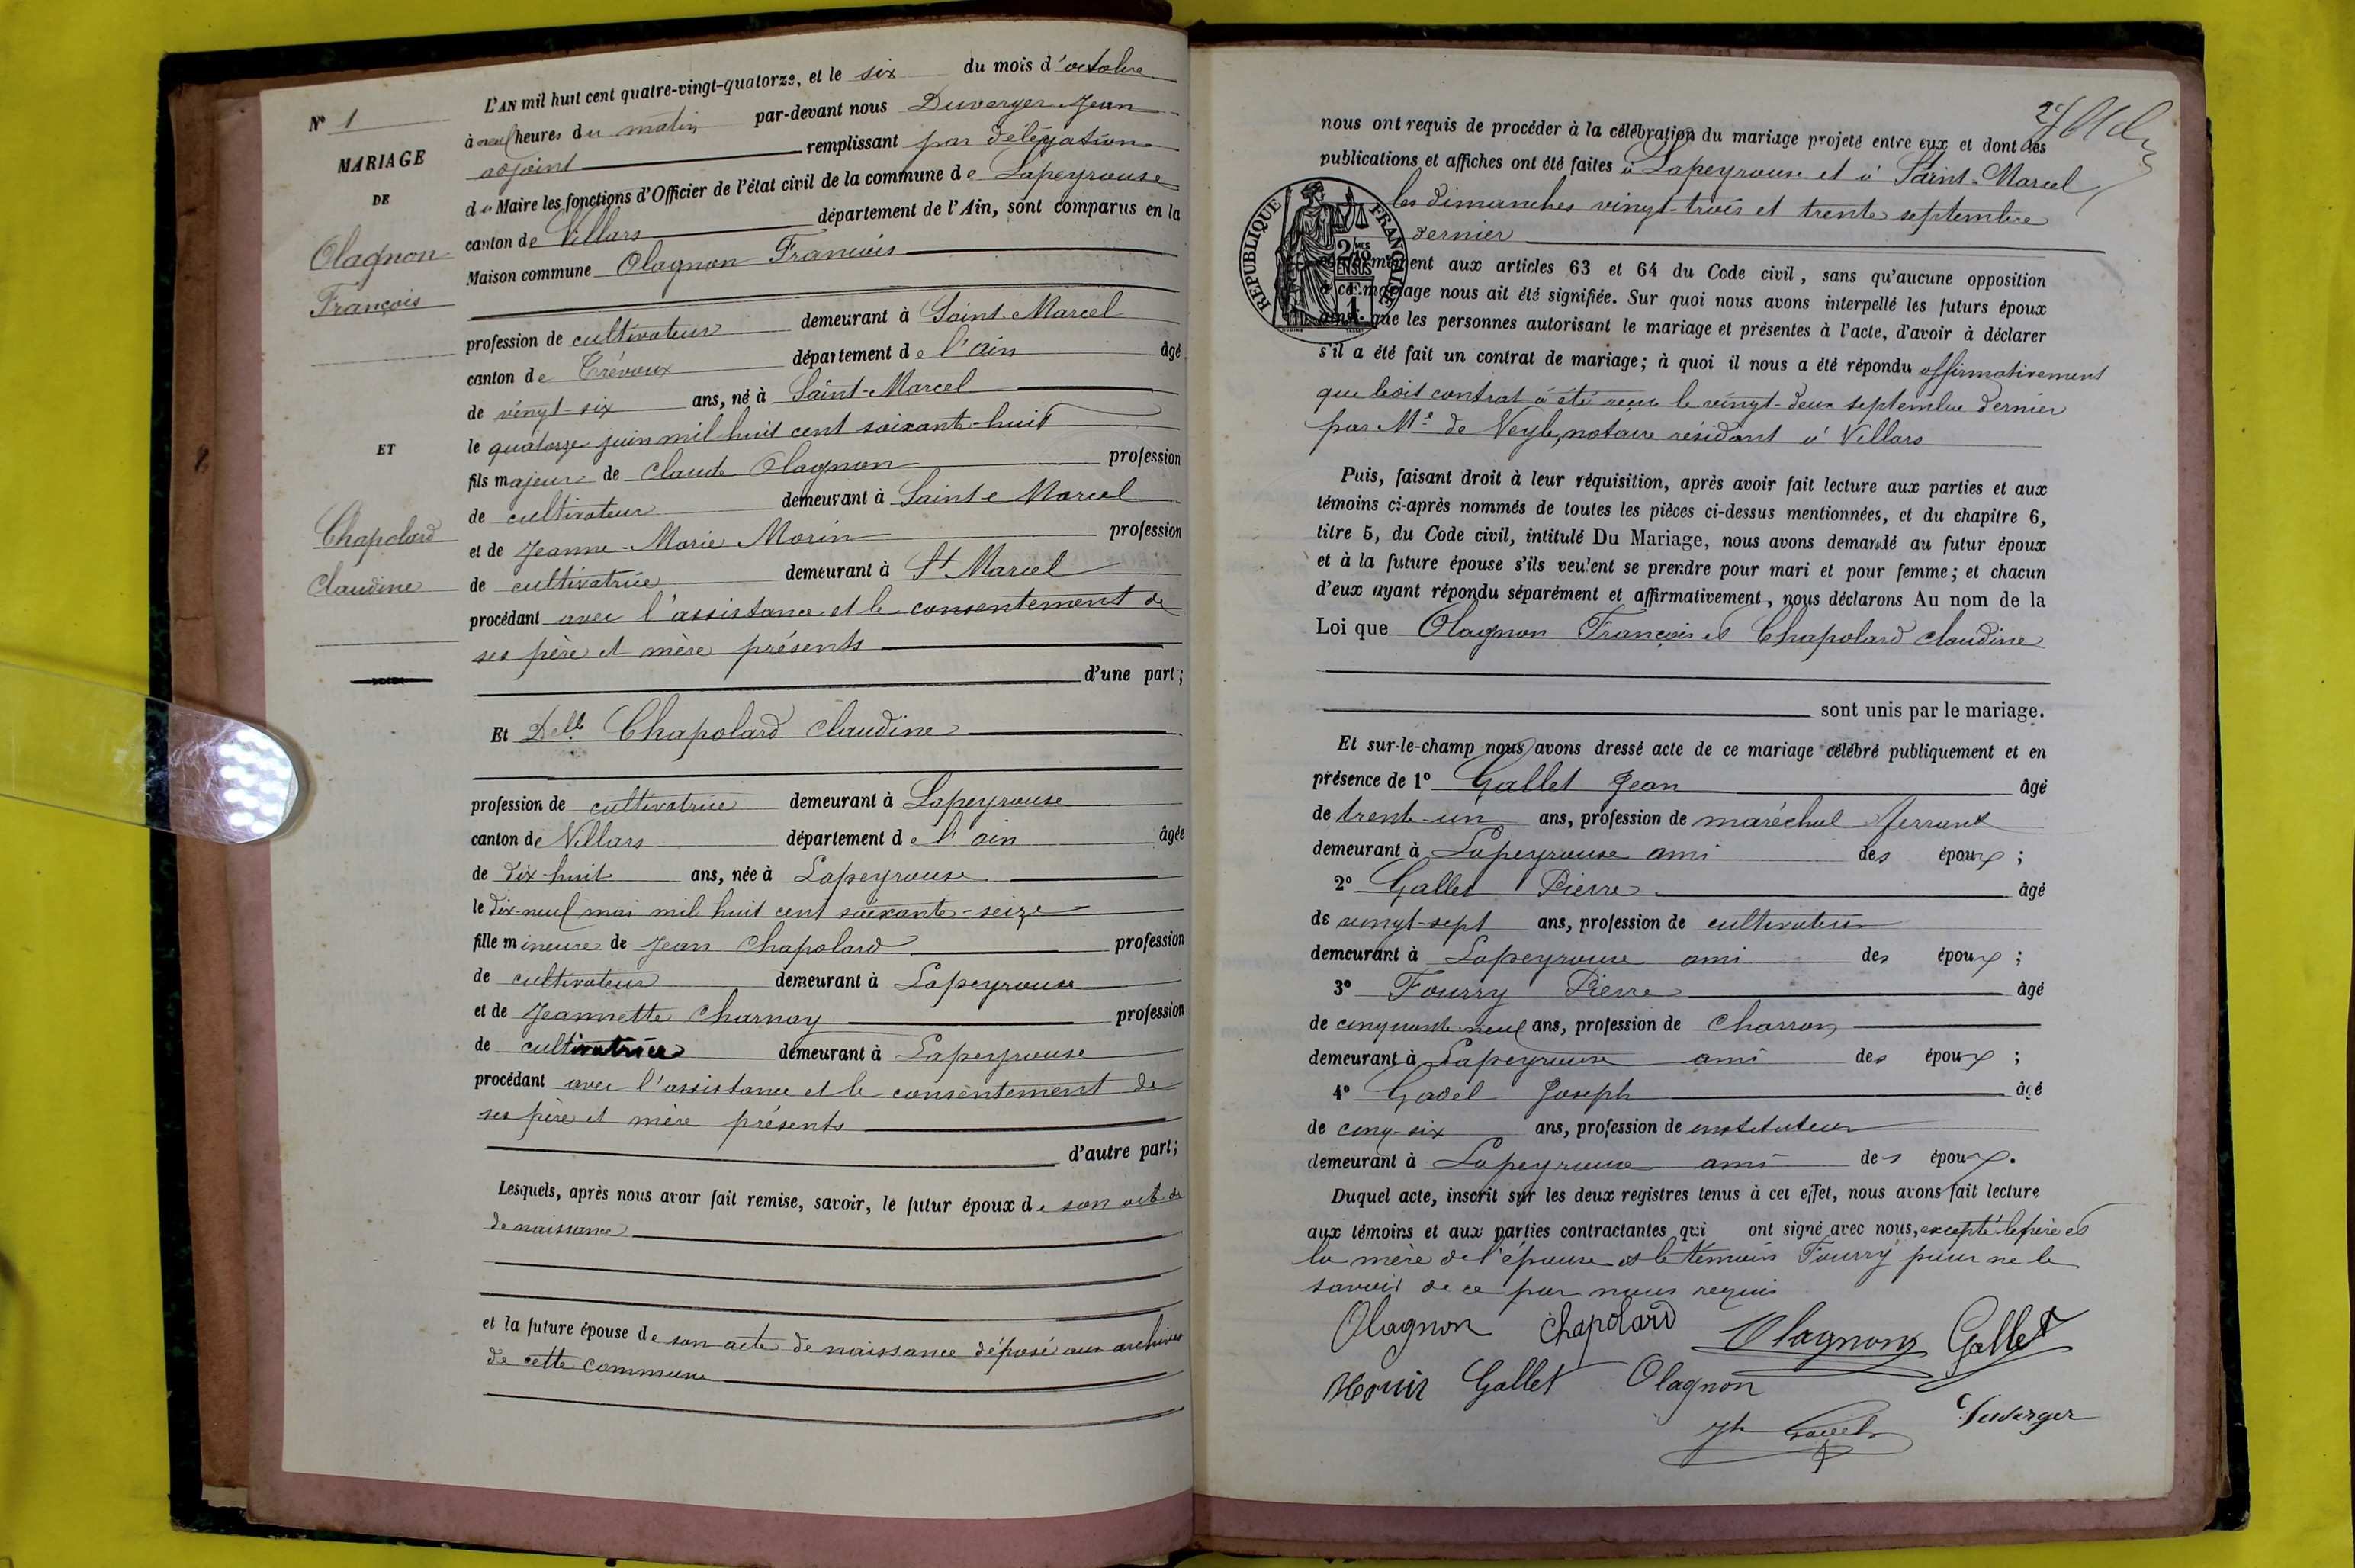 N° 1
MARIAGE
DE
Olagnon
François
ET
Chapolard
Claudine
L'AN mil huit cent quatre-vingt-quatorze, et le six du mois d'octobre
à neuf heures du matin par-devant nous Duverger Jean
adjoint remplissant par délégation
du Maire les fonctions d'Officier de l'état civil de la commune de Lapeyrouse
canton de Villars département de l'Ain, sont comparus en la
Maison commune Olagnon François
profession de cultivateur demeurant à Saint-Marcel
canton de Trévoux département de l'ain âgé
de vingt-six ans, né à Saint-Marcel
le quatorze juin mil huit cent soixante-huit
fils majeur de Claude Olagnon profession
de cultivateur demeurant à Saint-Marcel
et de Jeanne-Marie Morin profession
de cultivatrice demeurant à St Marcel
procédant avec l'assistance et le consentement de
ses père et mère présents
d'une part;
Et Delle Chapolard Claudine
profession de cultivatrice demeurant à Lapeyrouse
canton de Villars département de l'ain âgée
de dix-huit ans, née à Lapeyrouse
le dix-neuf mai mil huit cent soixante-seize
fille mineure de Jean Chapolard profession
de cultivateur demeurant à Lapeyrouse
et de Jeannette Charnay profession
de cultivatrice demeurant à Lapeyrouse
procédant avec l'assistance et le consentement de
ses père et mère présents
d'autre part;
Lesquels, après nous avoir fait remise, savoir, le futur époux de son acte de
de naissance
et la future épouse de son acte de naissance déposé aux archives
de cette commune
nous ont requis de procéder à la célébration du mariage projeté entre eux et dont les
publications et affiches ont été faites à Lapeyrouse et à Saint-Marcel
les dimanches vingt-trois et trente septembre
dernier
REPUBLIQUE FRANÇAISE
conformément aux articles 63 et 64 du Code civil, sans qu'aucune opposition
à ce mariage nous ait été signifiée. Sur quoi nous avons interpellé les futurs époux
ainsi que les personnes autorisant le mariage et présentes à l'acte, d'avoir à déclarer
s'il a été fait un contrat de mariage; à quoi il nous a été répondu affirmativement
que ledit contrat a été reçu le vingt-deux septembre dernier
par Me de Veyle, notaire résidant à Villars
Puis, faisant droit à leur réquisition, après avoir fait lecture aux parties et aux
témoins ci-après nommés de toutes les pièces ci-dessus mentionnées, et du chapitre 6,
titre 5, du Code civil, intitulé Du Mariage, nous avons demandé au futur époux
et à la future épouse s'ils veulent se prendre pour mari et pour femme; et chacun
d'eux ayant répondu séparément et affirmativement, nous déclarons Au nom de la
Loi que Olagnon François et Chapolard Claudine
sont unis par le mariage.
Et sur-le-champ nous avons dressé acte de ce mariage célébré publiquement et en
présence de 1° Gallet Jean âgé
de trente-un ans, profession de maréchal ferrant
demeurant à Lapeyrouse ami des époux;
2° Gallet Pierre âgé
de vingt-sept ans, profession de cultivateur
demeurant à Lapeyrouse ami des époux;
3° Fourry Pierre âgé
de cinquante-neuf ans, profession de charron
demeurant à Lapeyrouse ami des époux;
4° Godel Joseph âgé
de cinq-six ans, profession de instituteur
demeurant à Lapeyrouse ami des époux.
Duquel acte, inscrit sur les deux registres tenus à cet effet, nous avons fait lecture
aux témoins et aux parties contractantes qui ont signé avec nous, excepté le père et
la mère de l'épouse et le témoin Fourry pour ne le
savoir de ce par nous requis
Olagnon Chapolard Olagnon Gallet
Morin Gallet Olagnon
Duverger